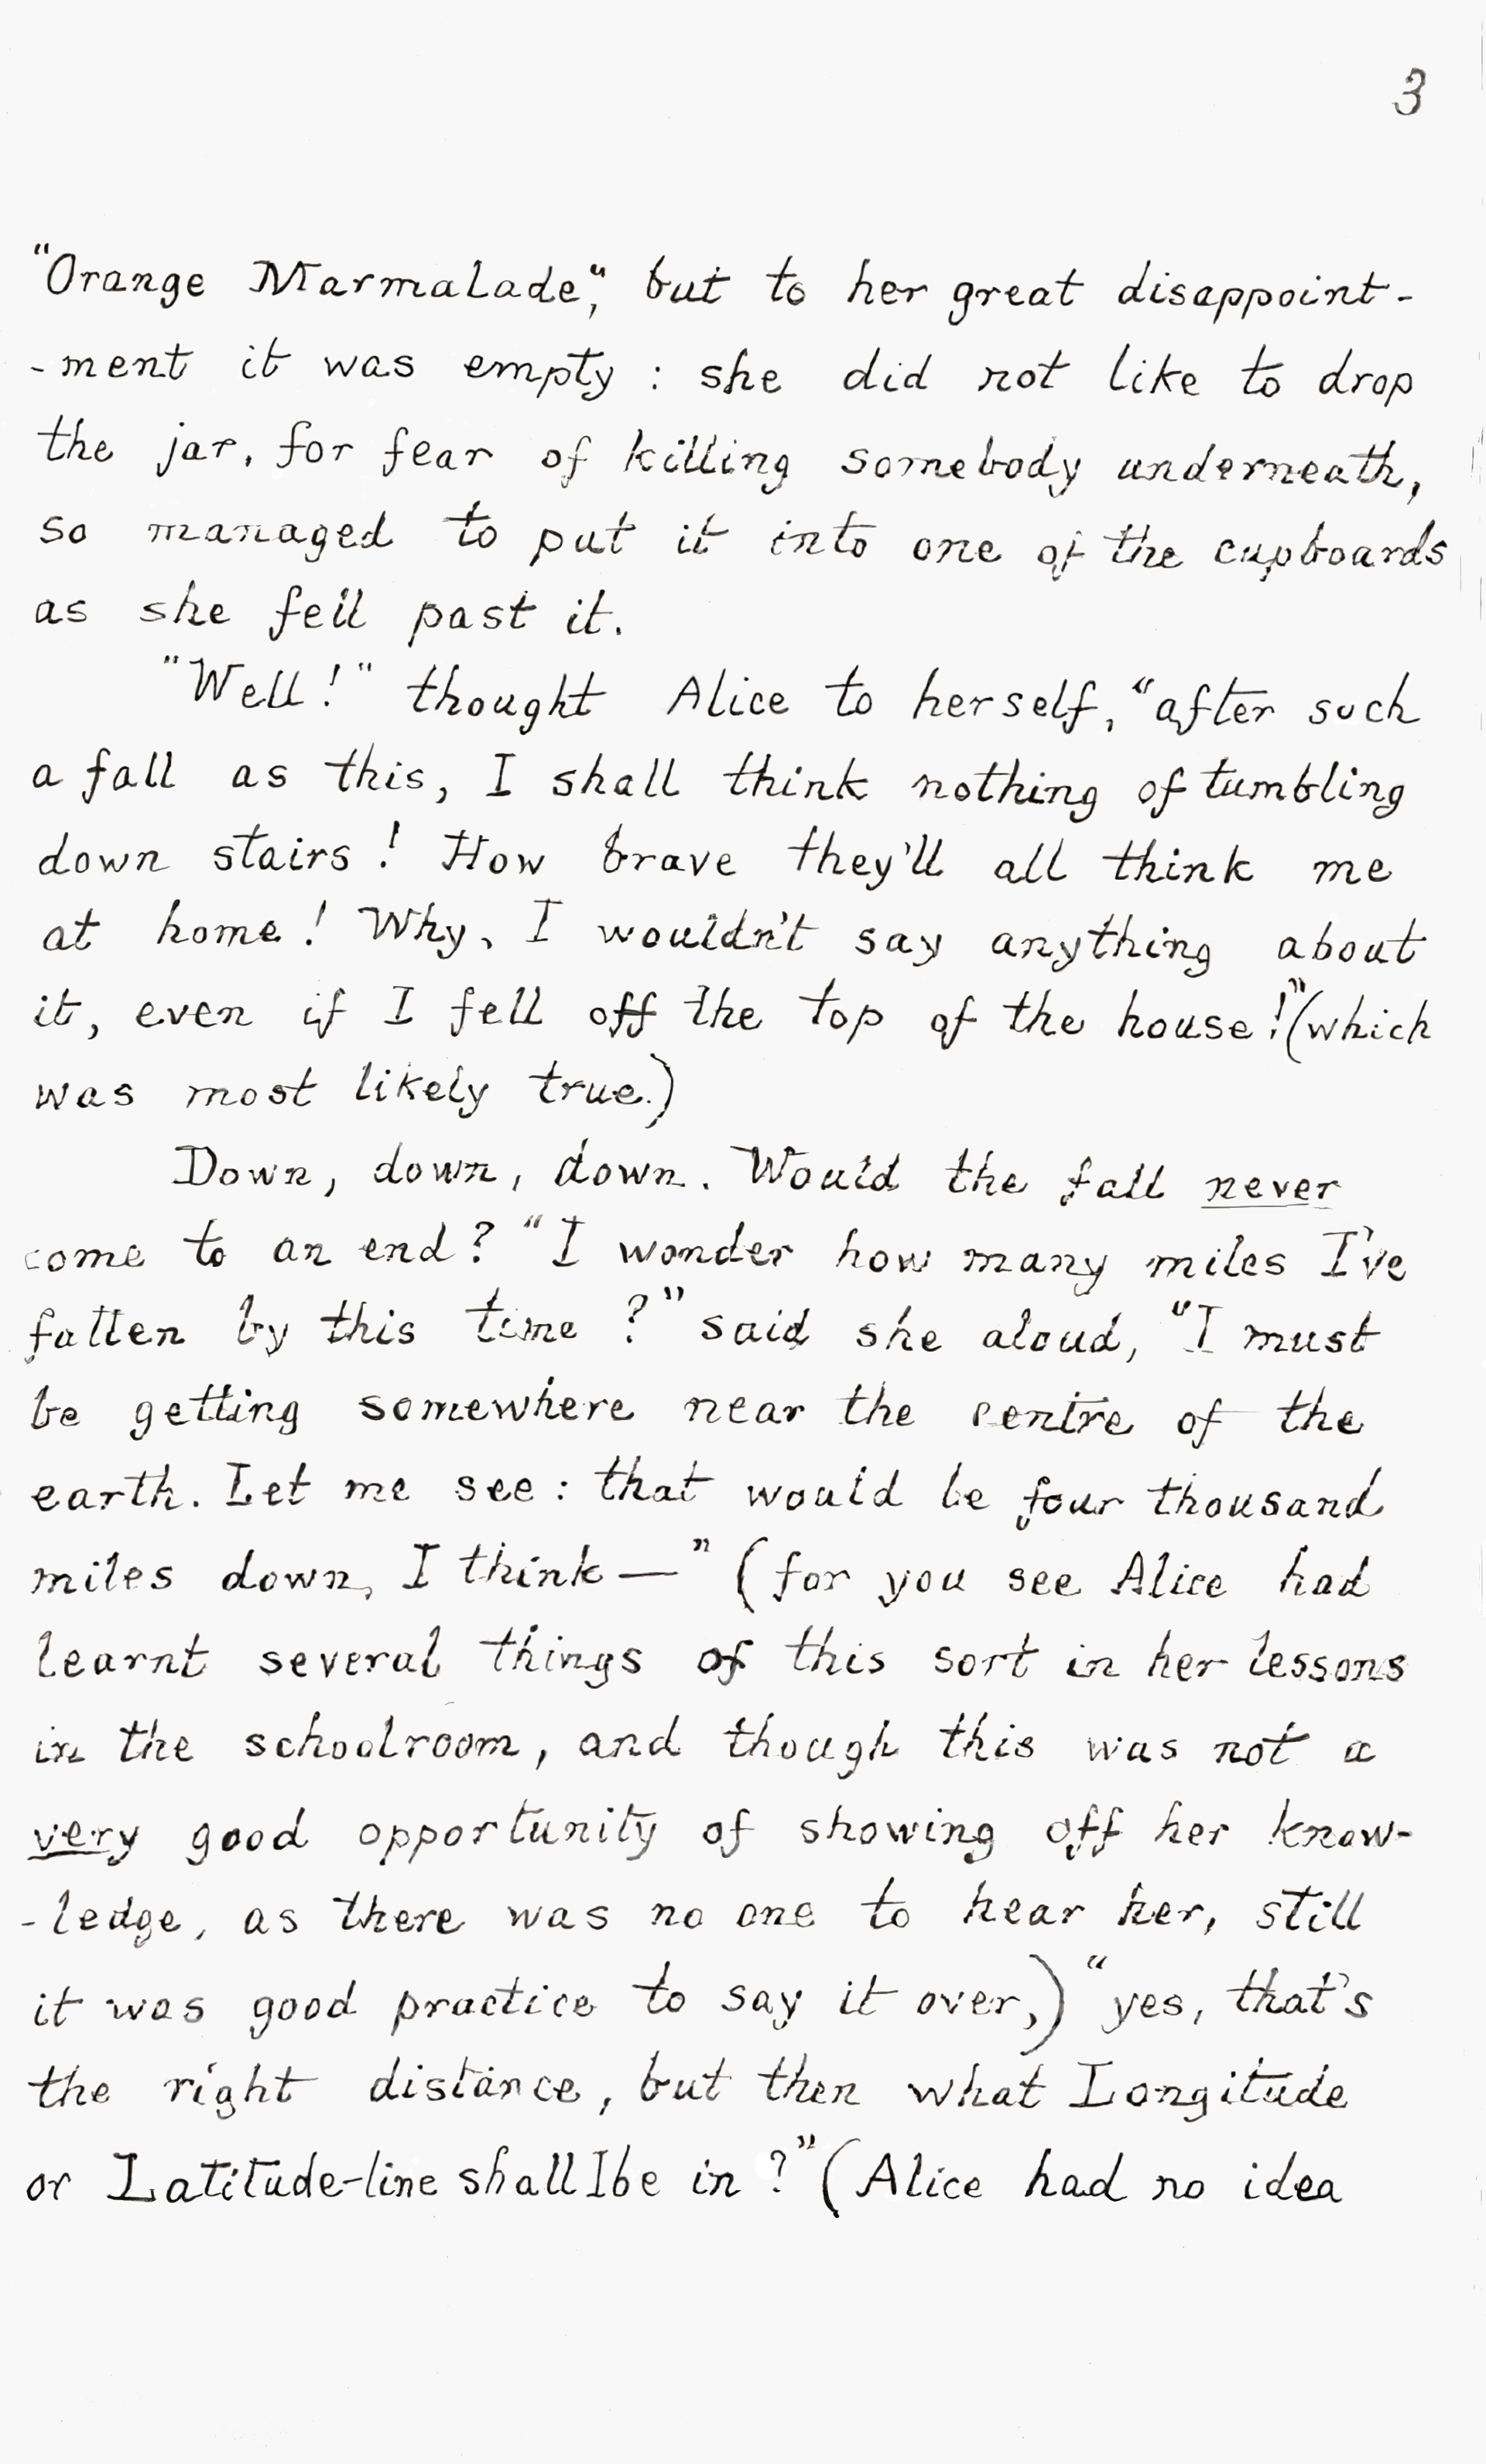 3
"Orange Marmalade", but to her great disappoint-
-ment it was empty : she did not like to drop
the jar, for fear of killing somebody underneath,
so managed to put it into one of the cupboards
as she fell past it.
"Well!" thought Alice to herself, "after such
a fall as this, I shall think nothing of tumbling
down stairs ! How brave they'll all think me
at home ! Why, I wouldn't say anything about
it, even if I fell off the top of the house!" (which
was most likely true.)
Down, down, down. Would the fall never
come to an end? "I wonder how many miles I've
fallen by this time ?" said she aloud, "I must
be getting somewhere near the centre of the
earth. Let me see : that would be four thousand
miles down, I think—" (for you see Alice had
learnt several things of this sort in her lessons
in the schoolroom, and though this was not a
very good opportunity of showing off her know-
-ledge, as there was no one to hear her, still
it was good practice to say it over,) "yes, that's
the right distance, but then what Longitude
or Latitude-line shall I be in ?" (Alice had no idea